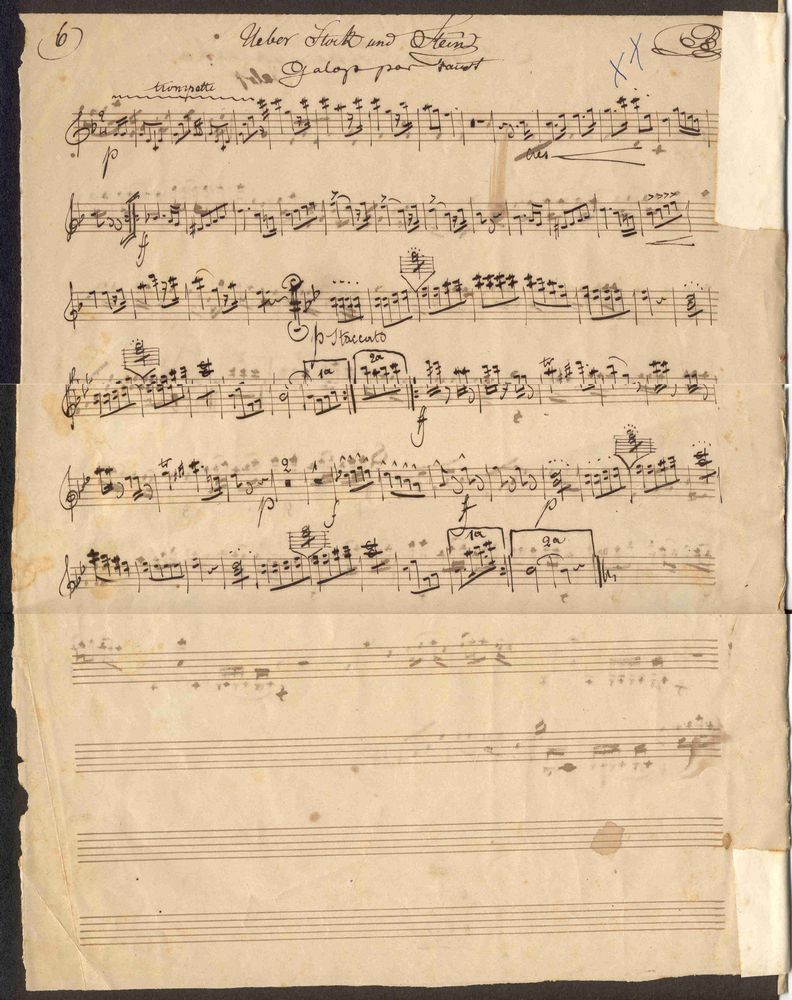 6 Ueber Stock und Stein
Galop par Faust
XX
trompette
p
cres
f
p Staccato
1a 2a
f
2 1
p f f p
1a 2a